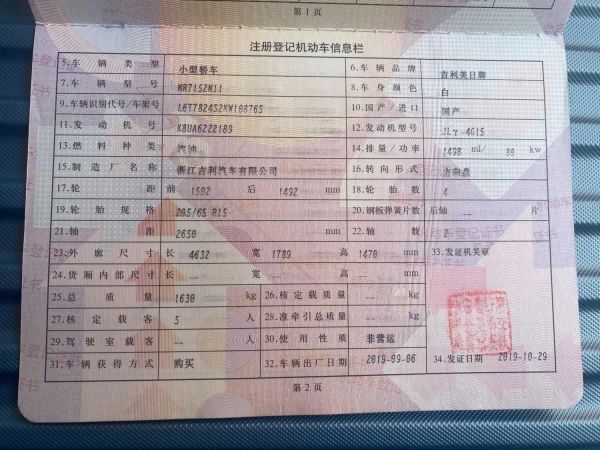 第 1 页
注册登记机动车信息栏
5.车辆类型 小型轿车 6.车辆品牌 吉利美日牌
7.车辆型号 MR7152M11 8.车身颜色 白
9.车辆识别代号/车架号 L6T7824S2KW108765 10.国产/进口 国产
11.发动机号 K8UA6222189 12.发动机型号 JLγ-4G15
13.燃料种类 汽油 14.排量/功率 1498 ml/ 80 kw
15.制造厂名称 浙江吉利汽车有限公司 16.转向形式 方向盘
17.轮距 前 1502 后 1492 mm 18.轮胎数 4
19.轮胎规格 205/65 R15 20.钢板弹簧片数 后轴 -- 片
21.轴距 2650 mm 22.轴数 2
23.外廓尺寸 长 4632 宽 1789 高 1470 mm 33.发证机关章
24.货厢内部尺寸 长 -- 宽 -- 高 -- mm
25.总质量 1630 kg 26.核定载质量 -- kg
27.核定载客 5 人 28.准牵引总质量 -- kg
29.驾驶室载客 -- 人 30.使用性质 非营运
31.车辆获得方式 购买 32.车辆出厂日期 2019-09-06 34.发证日期 2019-10-29
第 2 页